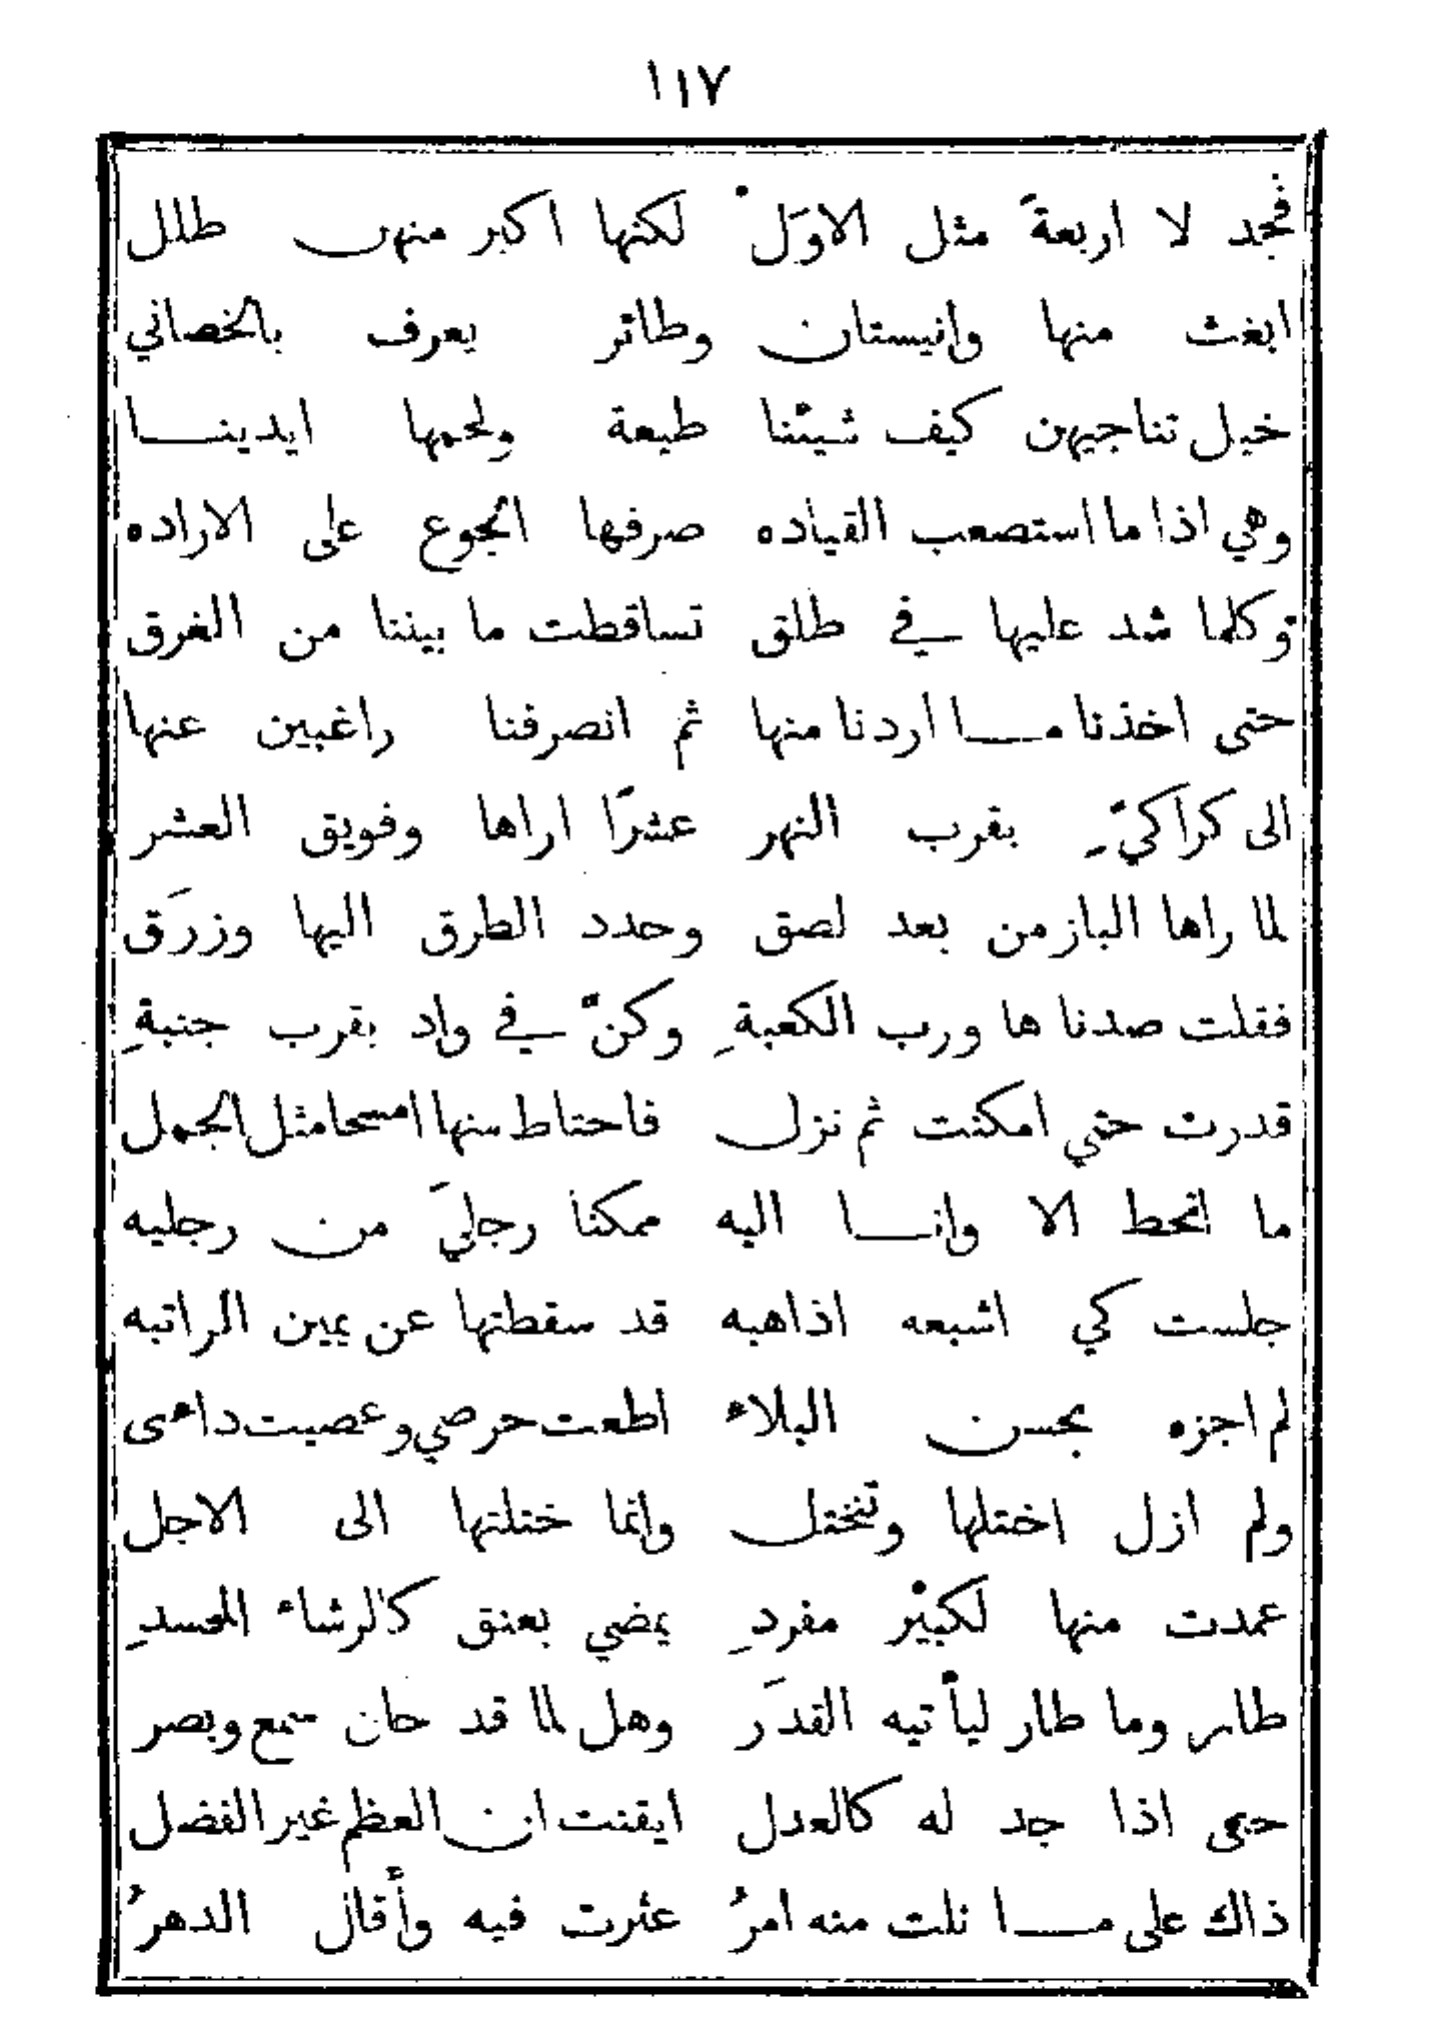 ١١٧
فجد لا اربعةً مثل الاوَلْ لكنها اكبر منهن طلل
ابغث منها وانيستان وطائر يعرف بالخصاني
خيل تناجيهن كيف شيئنا طيعة ولحمها ايدينا
وهي اذا ما استصعب القياده صرفها الجوع على الاراده
وكلما شد عليها في طلق تساقطت ما بيننا من الفرق
حتى اخذنا ما اردنا منها ثم انصرفنا راغبين عنها
الى كراكيّ بقرب النهر عشرًا اراها وفويق العشر
لما راها الباز من بعد لصق وحدد الطرق اليها وزرَق
فقلت صدنا ها ورب الكعبةِ وكنّ في واد بقرب جنبةِ
قدرت حتي امكنت ثم نزل فاحتاط منها امسحا مثل الجمل
ما انحط الا وانا اليه ممكنا رجليَ من رجليه
جلست كي اشبعه اذاهبه قد سقطتها عن يمين الراتبه
لم اجزه بحسن البلاء اطعت حرصي وعصيت داءى
ولم ازل اختلها وتنختل وانما ختلتها الى الاجل
عمدت منها لكبيْر مفردِ يمضي بعنق كالرشاء المحسدِ
طار وما طار ليأتيه القدَر وهل لما قد حان سمع وبصر
حتى اذا جد له كالعدل ايقنت ان العظم غير الفضل
ذاك على ما نلت منه امرُ عثرت فيه وأقال الدهرُ